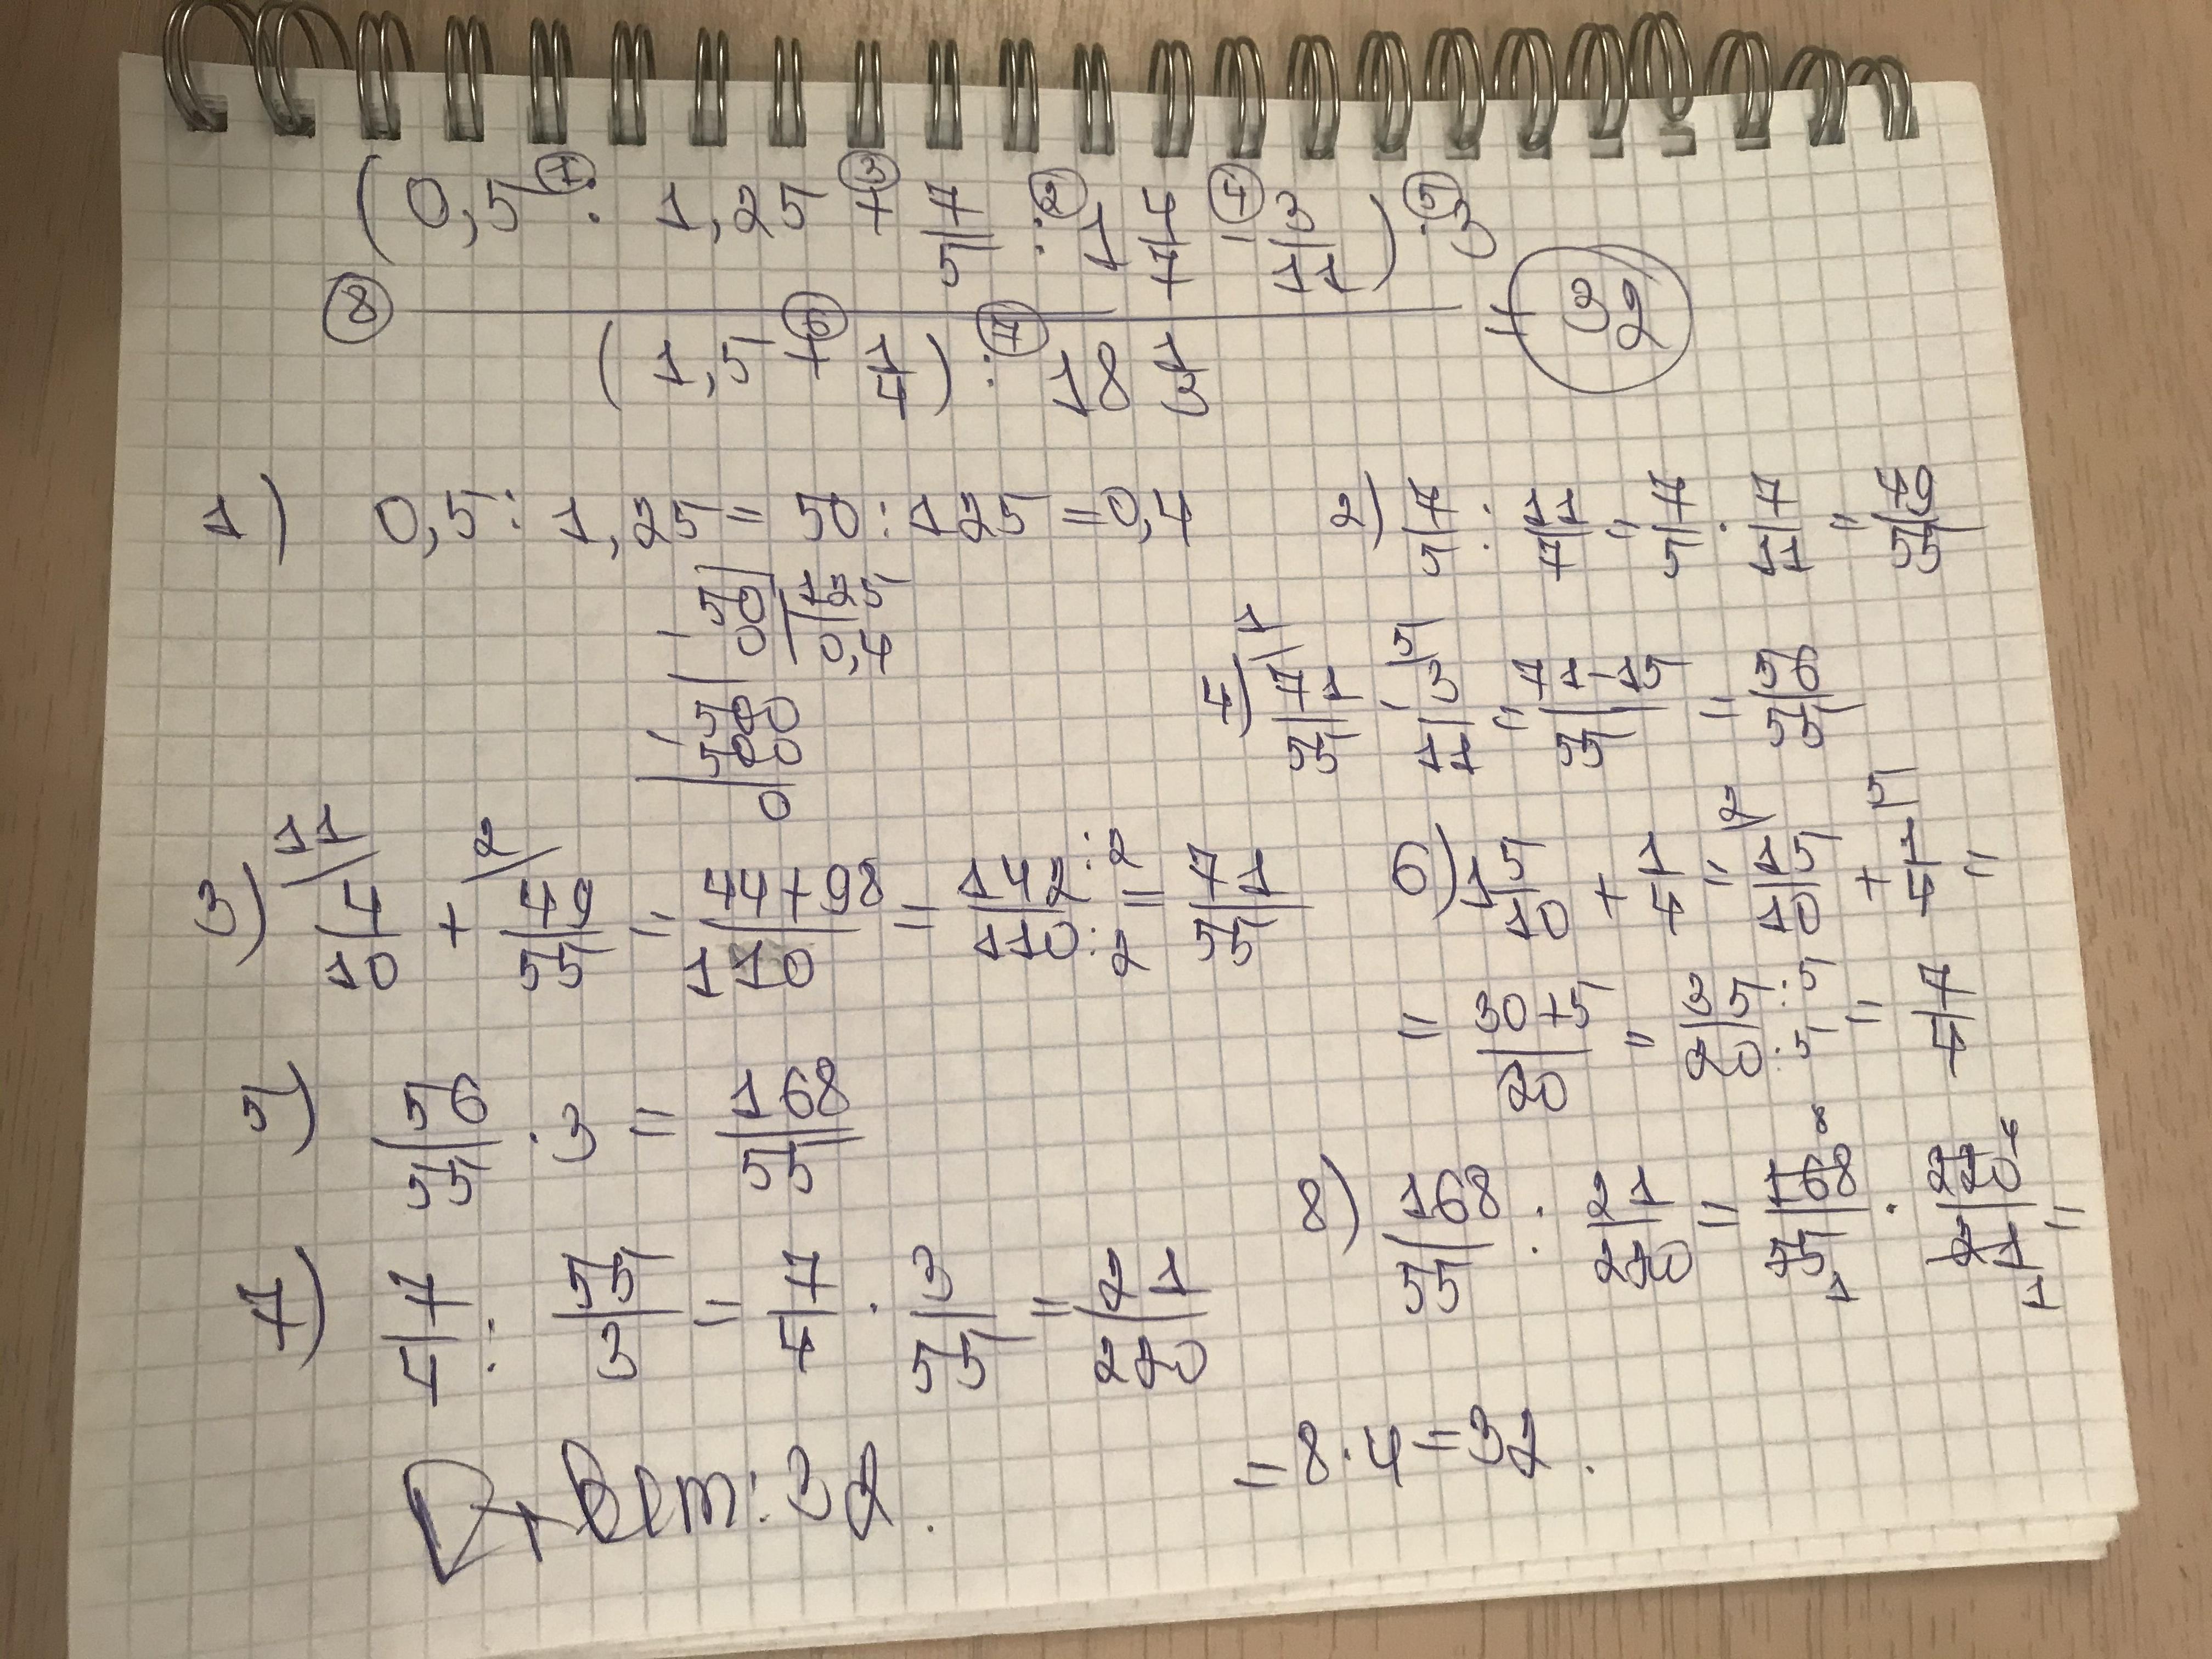 (0,5 : 1,25 + 7/5 : 1 4/7 - 3/11) · 3
⑧ = 32
(1,5 + 1/4) : 18 1/3
1) 0,5 : 1,25 = 50 : 125 = 0,4
500 | 125
500 | 0,4
0
2) 7/5 : 11/7 = 7/5 · 7/11 = 49/55
3) 4/10 + 49/55 = 44+98/110 = 142:2/110:2 = 71/55
4) 71/55 - 3/11 = 71-15/55 = 56/55
5) 56/55 · 3 = 168/55
6) 15/10 + 1/4 = 15/10 + 1/4 =
= 30+5/20 = 35:5/20:5 = 7/4
7) 7/4 : 55/3 = 7/4 · 3/55 = 21/220
8) 168/55 : 21/220 = 168/55 · 220/21 =
= 8 · 4 = 32.
Ответ: 32.